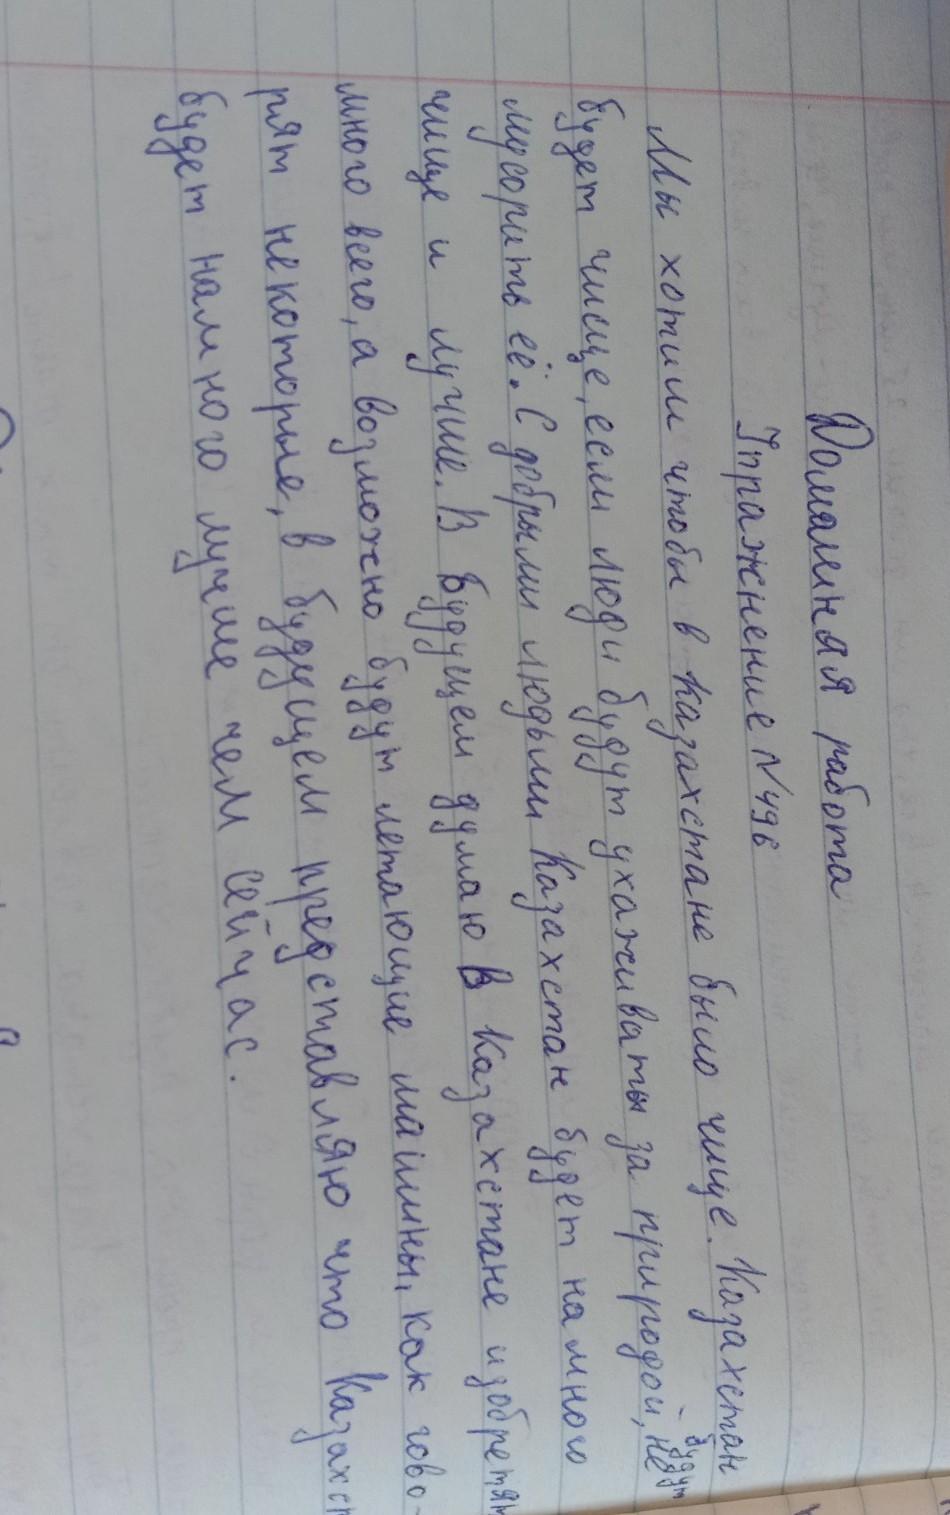 Домашняя работа
Упражнение №496
Мы хотим чтобы в Казахстане было чище. Казахстан
будет чище, если люди будут ухаживать за природой, не будут
мусорить её. С добрыми людьми Казахстан будет намного
чище и лучше. В будущем думаю в Казахстане изобретят
много всего, а возможно будут летающие машины, как гово-
рят некоторые, в будущем представляю что Казахст
будет намного лучше чем сейчас.